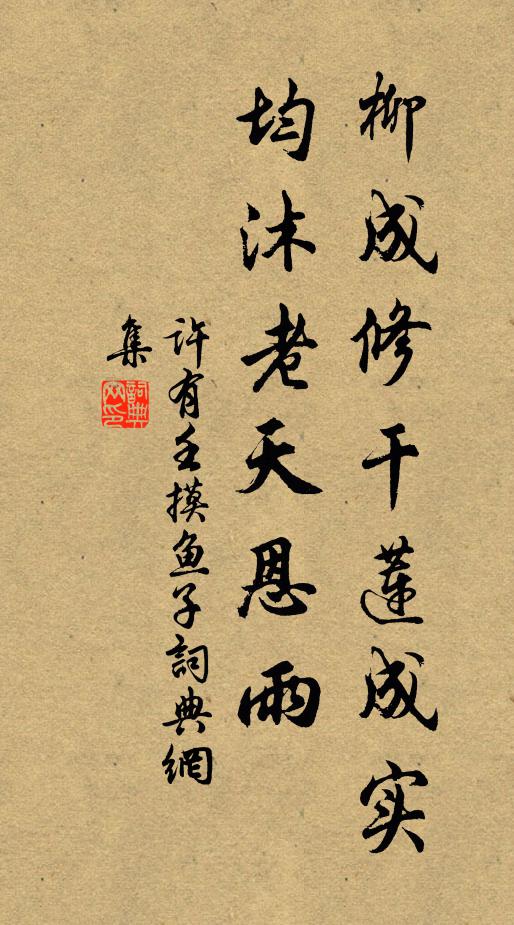 柳成修干蓮成实
均沐老天恩雨
许有壬摸鱼子詞典網
集
詞典
网印